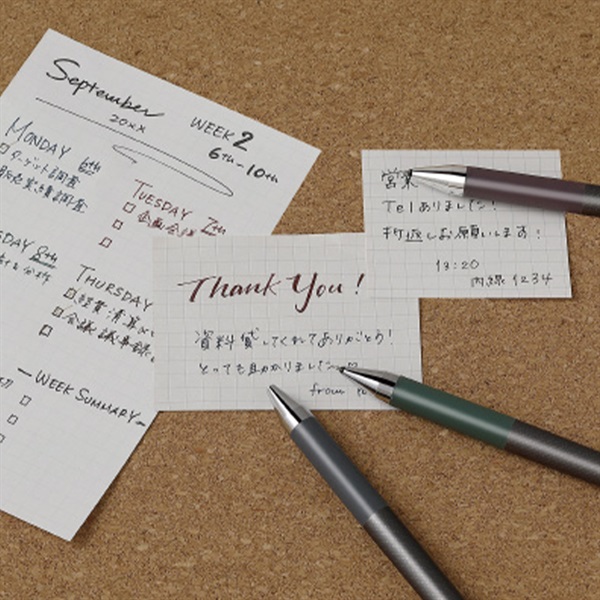 September
20XX
WEEK 2
6th-10th
MONDAY 6th
□ ターゲット調査
販売実績調査
TUESDAY 7th
□ 企画会議
□
□
8th
THURSDAY
□ 経費清算
□ 会議議事録
□
-WEEK SUMMARY-
□
□
Thank You!
資料貸してくれてありがとう!
とっても助かりました
from
営業
Telありました!
折返しお願いします!
13:20
内線1234